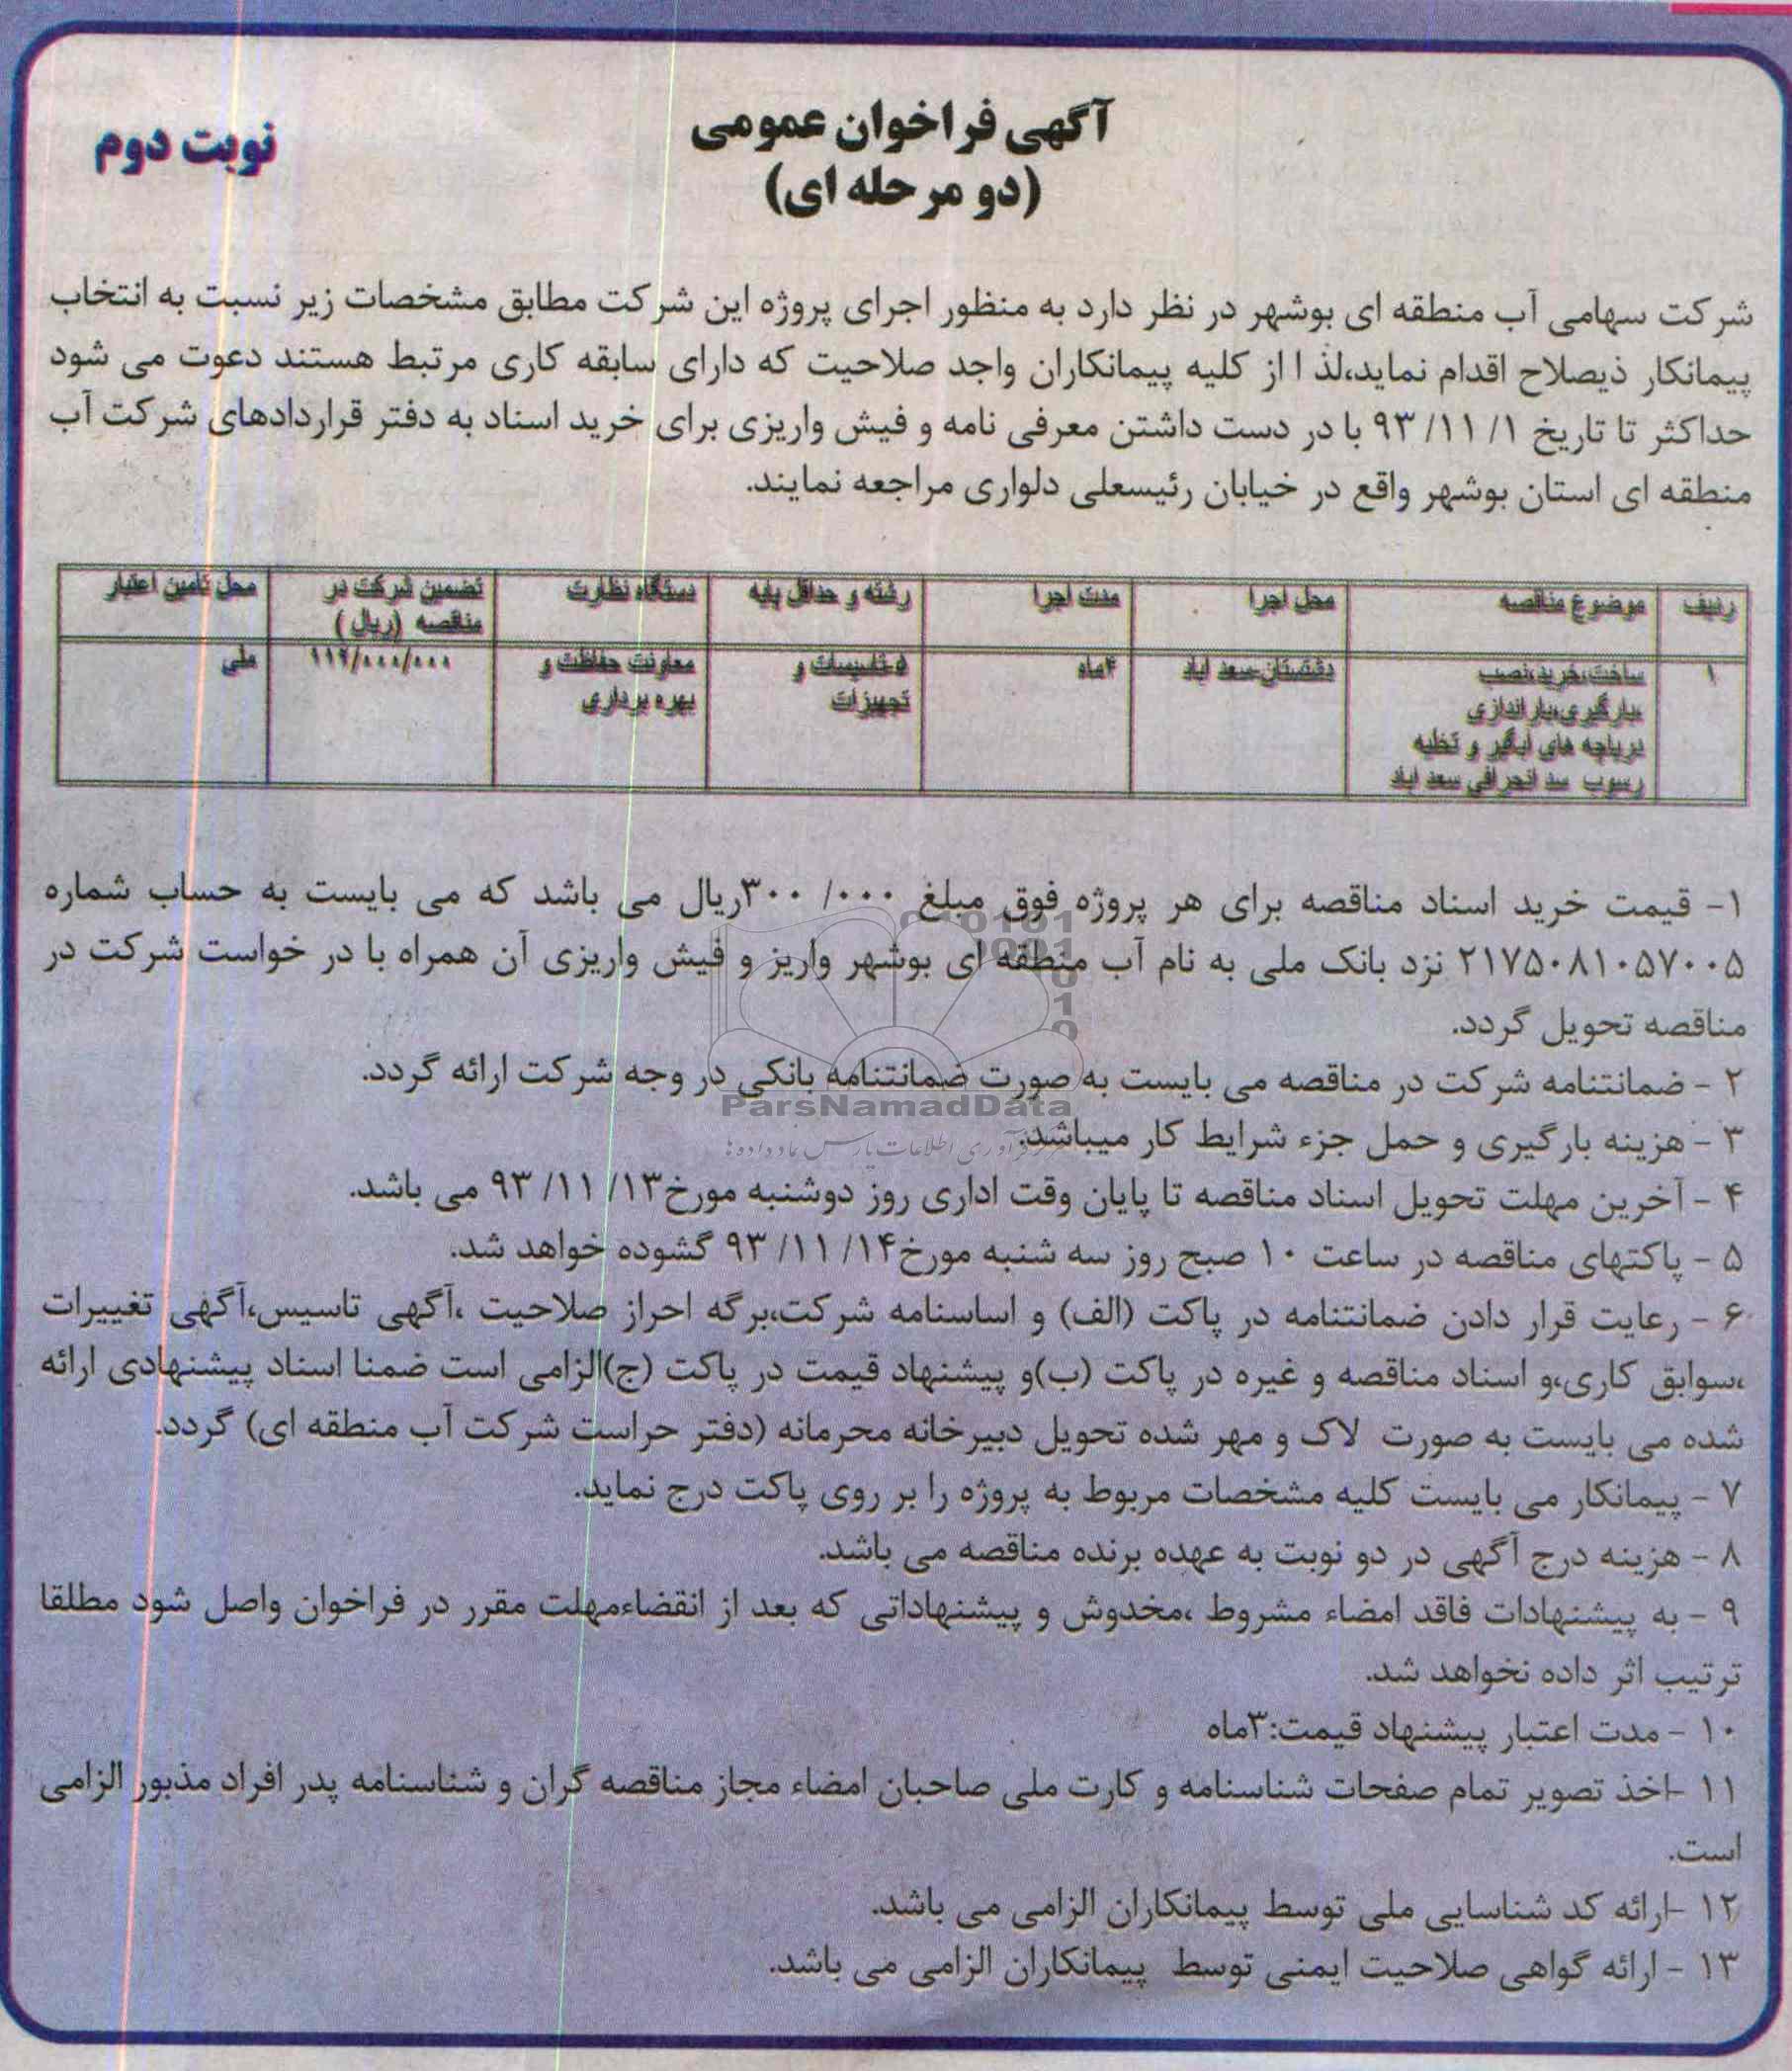 آگهی فراخوان عمومی
(دو مرحله ای)
نوبت دوم
شرکت سهامی آب منطقه ای بوشهر در نظر دارد به منظور اجرای پروژه این شرکت مطابق مشخصات زیر نسبت به انتخاب
پیمانکار ذیصلاح اقدام نماید،لذ ا از کلیه پیمانکاران واجد صلاحیت که دارای سابقه کاری مرتبط هستند دعوت می شود
حداکثر تا تاریخ ۱/ ۱۱/ ۹۳ با در دست داشتن معرفی نامه و فیش واریزی برای خرید اسناد به دفتر قراردادهای شرکت آب
منطقه ای استان بوشهر واقع در خیابان رئیسعلی دلواری مراجعه نمایند.
ردیف موضوع مناقصه محل اجرا مدت اجرا رشته و حداقل پایه دستگاه نظارت تضمین شرکت در محل تامین اعتبار
مناقصه (ریال)
۱ ساخت،خرید،نصب دشتستان-سعد اباد ۴ماه ۵-تاسیسات و معاونت حفاظت و ملی
،بارگیری،بار اندازی تجهیزات بهره برداری
دریاچه های ابگیر و تخلیه
رسوب سد انحرافی سعد اباد
۱- قیمت خرید اسناد مناقصه برای هر پروژه فوق مبلغ ۰۰۰/ ۳۰۰ریال می باشد که می بایست به حساب شماره
۲۱۷۵۰۸۱۰۵۷۰۰۵ نزد بانک ملی به نام آب منطقه ای بوشهر واریز و فیش واریزی آن همراه با در خواست شرکت در
مناقصه تحویل گردد.
۲ - ضمانتنامه شرکت در مناقصه می بایست به صورت ضمانتنامه بانکی در وجه شرکت ارائه گردد.
۳ - هزینه بارگیری و حمل جزء شرایط کار میباشد.
۴ - آخرین مهلت تحویل اسناد مناقصه تا پایان وقت اداری روز دوشنبه مورخ۱۳/ ۱۱/ ۹۳ می باشد.
۵ - پاکتهای مناقصه در ساعت ۱۰ صبح روز سه شنبه مورخ۱۴/ ۱۱/ ۹۳ گشوده خواهد شد.
۶ - رعایت قرار دادن ضمانتنامه در پاکت (الف) و اساسنامه شرکت،برگه احراز صلاحیت ،آگهی تاسیس،آگهی تغییرات
،سوابق کاری،و اسناد مناقصه و غیره در پاکت (ب)و پیشنهاد قیمت در پاکت (ج)الزامی است ضمنا اسناد پیشنهادی ارائه
شده می بایست به صورت لاک و مهر شده تحویل دبیرخانه محرمانه (دفتر حراست شرکت آب منطقه ای) گردد.
۷ - پیمانکار می بایست کلیه مشخصات مربوط به پروژه را بر روی پاکت درج نماید.
۸ - هزینه درج آگهی در دو نوبت به عهده برنده مناقصه می باشد.
۹ - به پیشنهادات فاقد امضاء مشروط ،مخدوش و پیشنهاداتی که بعد از انقضاءمهلت مقرر در فراخوان واصل شود مطلقا
ترتیب اثر داده نخواهد شد.
۱۰ - مدت اعتبار پیشنهاد قیمت:۳ماه
۱۱ -اخذ تصویر تمام صفحات شناسنامه و کارت ملی صاحبان امضاء مجاز مناقصه گران و شناسنامه پدر افراد مذبور الزامی
است.
۱۲ -ارائه کد شناسایی ملی توسط پیمانکاران الزامی می باشد.
۱۳ - ارائه گواهی صلاحیت ایمنی توسط پیمانکاران الزامی می باشد.
ParsNamadData